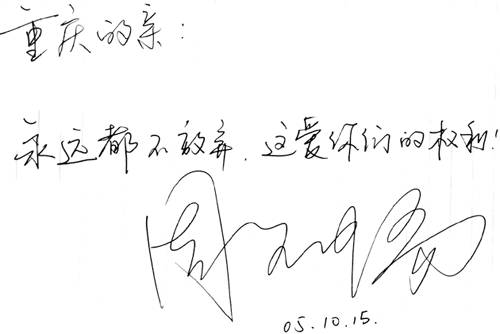 重庆的亲:
永远都不放弃.这爱你们的权利!
周笔畅
05.10.15.